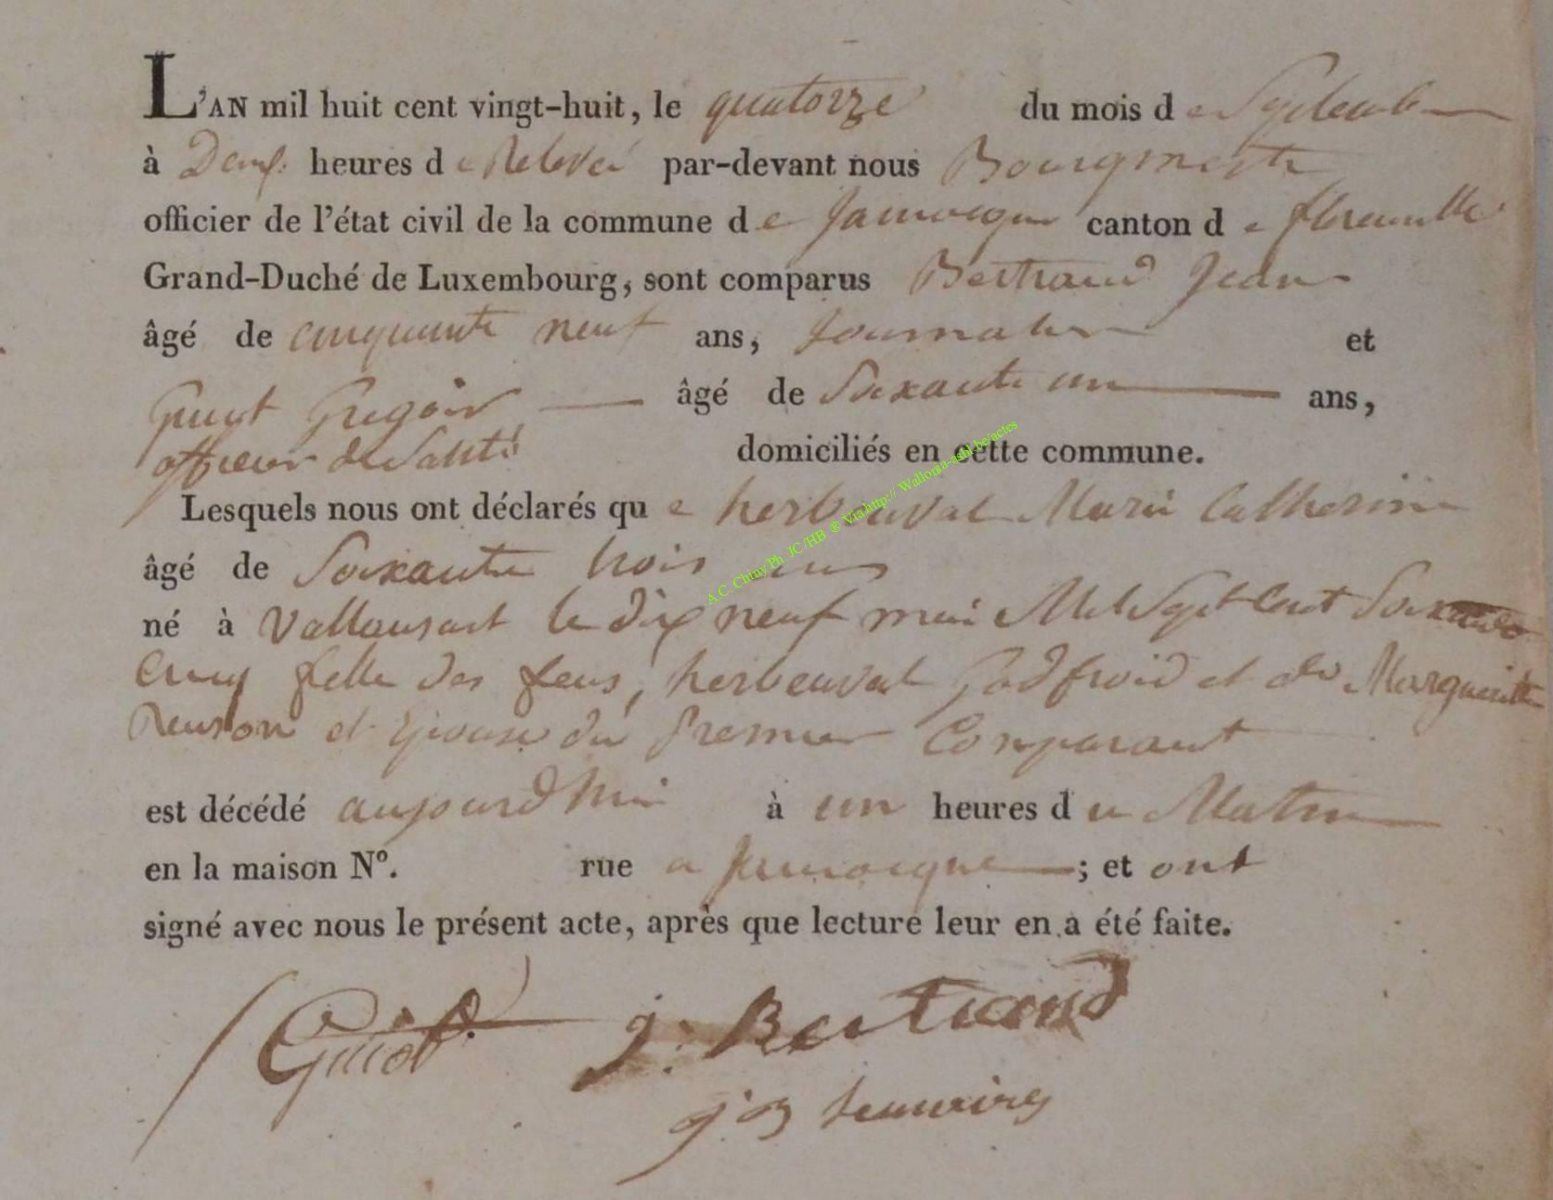 L'AN mil huit cent vingt-huit, le quatorze du mois de Septembre
à Deux heures de Relevée par-devant nous Bourgmestre
officier de l'état civil de la commune de Jamoigne canton de florenville
Grand-Duché de Luxembourg, sont comparus Bertrand Jean
âgé de cinquante neuf ans, Journalier et
Guiot Gregoir âgé de Soixante un ans,
officier de Santé domiciliés en cette commune.
Lesquels nous ont déclarés que herbeuval Marie Catherine
âgé de Soixante trois ans
né à Vallansart le dix neuf mai Mil Sept Cent Soixante
Cinq fille des feus, herbeuval Godfroid et de Marguerite
Renson et Epouse du Premier Comparant
est décédé aujourd'hui à un heures du Matin
en la maison N°. rue a Jamoigne ; et ont
signé avec nous le présent acte, après que lecture leur en a été faite.
Guiot j: Bertrand
A.C. Chiny Ph JC/HB ® Via http:// Wallonia-asbl.be/actes